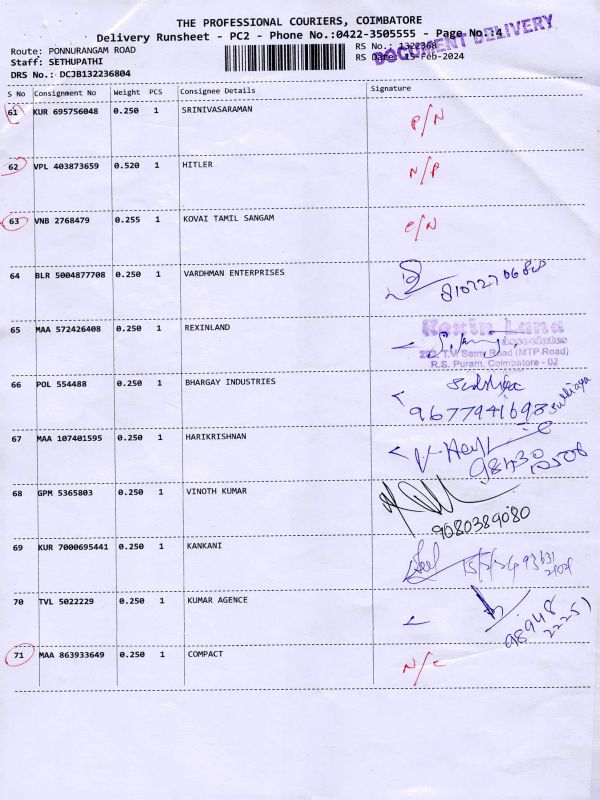 THE PROFESSIONAL COURIERS, COIMBATORE
Delivery Runsheet - PC2 - Phone No.:0422-3505555 - Page No.:4
DOCUMENT DELIVERY
Route: PONNURANGAM ROAD RS No.: 1322368
Staff: SETHUPATHI RS Date: 15-Feb-2024
DRS No.: DCJB132236804
S No Consignment No Weight PCS Consignee Details Signature
61 KUR 695756048 0.250 1 SRINIVASARAMAN P/N
62 VPL 403873659 0.520 1 HITLER N/P
63 VNB 2768479 0.255 1 KOVAI TAMIL SANGAM C/N
64 BLR 5004877708 0.250 1 VARDHMAN ENTERPRISES
65 MAA 572426408 0.250 1 REXINLAND
Rexin Land
Associates
T.V. Samy Road (MTP.Road)
R.S. Puram, Coimbatore - 02
66 POL 554488 0.250 1 BHARGAY INDUSTRIES
9677941693
67 MAA 107401595 0.250 1 HARIKRISHNAN
68 GPM 5365803 0.250 1 VINOTH KUMAR
9080389080
69 KUR 7000695441 0.250 1 KANKANI
70 TVL 5022229 0.250 1 KUMAR AGENCE
98948
22251
71 MAA 863933649 0.250 1 COMPACT N/C